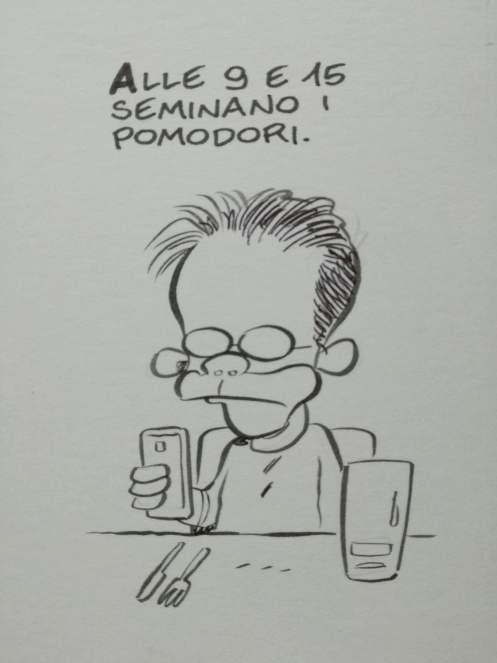 ALLE 9 E 15
SEMINANO I
POMODORI.